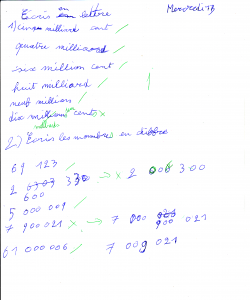 Mercredi 13
Ecris en lettre
1) un milliard cent
quatre milliard
six million cent
huit milliard
neuf millions
dix millions cents x
milliard
2) Ecris les nombres en chiffre
69 123
2 0303 330 → x 2 006 300
600
5 000 009
7 900 021 x → 7 000 900 021
61 000 006 7 009 021